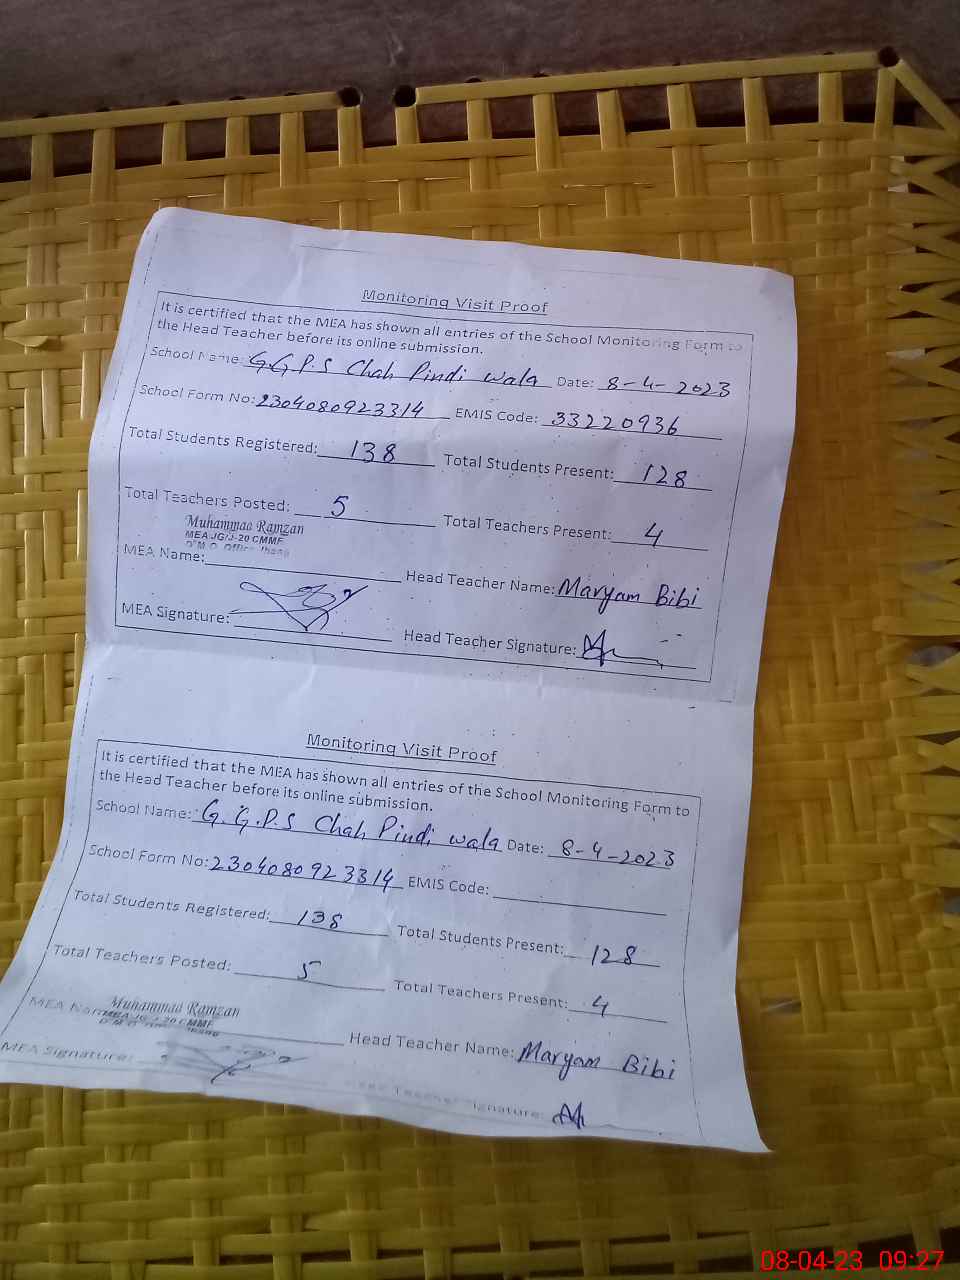 Monitoring Visit Proof
It is certified that the MEA has shown all entries of the School Monitoring Form to
the Head Teacher before its online submission.
School Name: G.G.P.S Chah Pindi wala Date: 8-4-2023
School Form No: 2304080923314 EMIS Code: 33220936
Total Students Registered: 138 Total Students Present: 128
Total Teachers Posted: 5 Total Teachers Present: 4
Muhammad Ramzan
MEA JG/J-20 CMMF
D.M.O. Office Jhang
MEA Name: Head Teacher Name: Maryam Bibi
MEA Signature: Head Teacher Signature:
Monitoring Visit Proof
It is certified that the MEA has shown all entries of the School Monitoring Form to
the Head Teacher before its online submission.
School Name: G.G.P.S Chah Pindi wala Date: 8-4-2023
School Form No: 2304080923314 EMIS Code:
Total Students Registered: 138 Total Students Present: 128
Total Teachers Posted: 5 Total Teachers Present: 4
Muhammad Ramzan
MEA JG/J-20 CMMF
D.M.O. Jhang
MEA Name: Head Teacher Name: Maryam Bibi
MEA Signature: Head Teacher Signature:
08-04-23 09:27